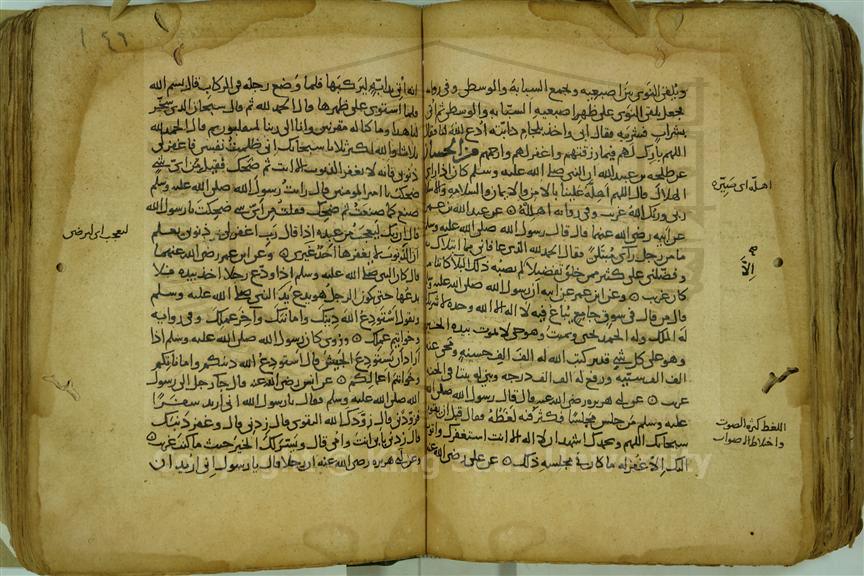 ويلقي النوى بين اصبعيه ويجمع السبابة والوسطى وفي رواية
فجعل يلقي النوى على ظهر اصبعيه السبابة والوسطى ثم اتي
بشراب فشربه فقال ابي واخذ بلجام دابته ادع الله لنا فقال
اللهم بارك لهم فيما رزقتهم واغفر لهم وارحمهم من الحسان
عن طلحة بن عبيد الله ان النبي صلى الله عليه وسلم كان اذا راى
الهلال قال اللهم اهله علينا بالامن والايمان والسلامة والاسلام
ربي وربك الله غريب
عن ابيه رضي الله عنهما قال قال رسول الله صلى الله عليه وسلم
ما من رجل راى مبتلى فقال الحمد لله الذي عافاني مما ابتلاك به
وفضلني على كثير ممن خلق تفضيلا لم يصبه ذلك البلا كائنا ما
كان غريب وعن ابن عمر عن ابيه ان رسول الله صلى الله عليه وسلم
قال من قال في سوق جامع يباع فيه لا اله الا الله وحده لا شريك
له الملك وله الحمد يحيي ويميت وهو حي لا يموت بيده الخير
وهو على كل شي قدير كتب الله له الف الف حسنة ومحي عنه
الف الف سيئة ورفع له الف الف درجة وبنى له بيتا في الجنة
غريب عن ابي هريرة رضي الله عنه قال قال رسول الله صلى الله
عليه وسلم من جلس مجلسا فكثر فيه لغطه فقال قبل ان يقوم
سبحانك اللهم وبحمدك اشهد ان لا اله الا انت استغفرك واتوب
اليك الا غفر له ما كان في مجلسه ذلك عن علي رضي الله عنه
اهله اى
إلا
اللغط كثرة الصوت
واختلاط الاصوات
١٤٩
انه اتي بدابة ليركبها فلما وضع رجله في الركاب قال بسم الله
فلما استوى على ظهرها قال الحمد لله ثم قال سبحان الذي سخر
لنا هذا وما كنا له مقرنين وانا الى ربنا لمنقلبون ثم قال الحمد لله
ثلاثا والله اكبر ثلاثا سبحانك اني ظلمت نفسي فاغفر لي
ذنوبي فانه لا يغفر الذنوب الا انت ثم ضحك فقيل من اي شي
ضحكت يا امير المومنين قال رايت رسول الله صلى الله عليه وسلم
صنع كما صنعت ثم ضحك فقلت من اي شي ضحكت يا رسول الله
قال ان ربك ليعجب من عبده اذا قال رب اغفر لي ذنوبي يعلم
ان الذنوب لا يغفرها احد غيري وعن ابن عمر رضي الله عنهما
قال كان النبي صلى الله عليه وسلم اذا ودع رجلا اخذ بيده فلا
يدعها حتى يكون الرجل هو يدع يد النبي صلى الله عليه وسلم
ويقول استودع الله دينك وامانتك واخر عملك وفي رواية
وخواتيم عملك وروي كان رسول الله صلى الله عليه وسلم اذا
اراد ان يستودع الجيش قال استودع الله دينكم وامانتكم
وخواتيم اعمالكم عن انس رضي الله عنه قال جا رجل الى رسول
الله صلى الله عليه وسلم وقال يا رسول الله اني اريد سفرا
فزودني قال زودك الله التقوى قال زدني قال وغفر ذنبك
قال زدني بابي انت وامي قال ويسر لك الخير حيث ما كنت غريب
وعن ابي هريرة رضي الله عنه ان رجلا قال يا رسول الله اني اريد ان
ليعجب اى ليرضى
© King Saud University